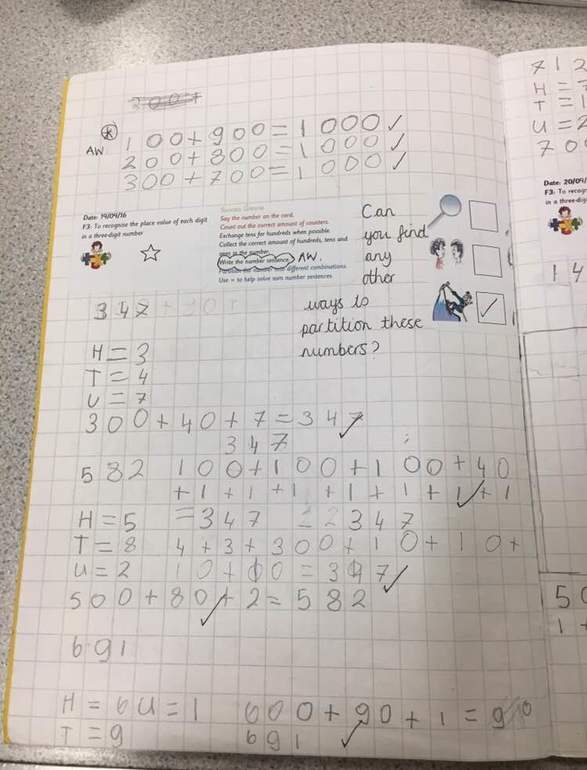 200+
AW
100+900=1000 ✓
200+800=1000 ✓
300+700=1000 ✓
Date: 19/04/16
F3: To recognise the place value of each digit
in a three-digit number
Success Criteria
Say the number on the card.
Count out the correct amount of counters.
Exchange tens for hundreds when possible.
Collect the correct amount of hundreds, tens and
ones in the number
Write the number sentence. AW.
Partition the number into different combinations
Use = to help solve sum number sentences
Can
you find
any
other
ways to
partition these
numbers?
347
H=3
T=4
U=7
300+40+7=347 ✓
347
582
100+100+100+40
+1+1+1+1+1+1+1
=347 347
H=5
T=8
U=2
4+3+300+10+10+
10+10=347 ✓
500+80+2=582 ✓
691
H=6 U=1
T=9
600+90+1=
691 ✓
712
H=7
T=1
U=2
700
Date: 20/04/
F3: To recognise
in a three-dig
14
50
1+